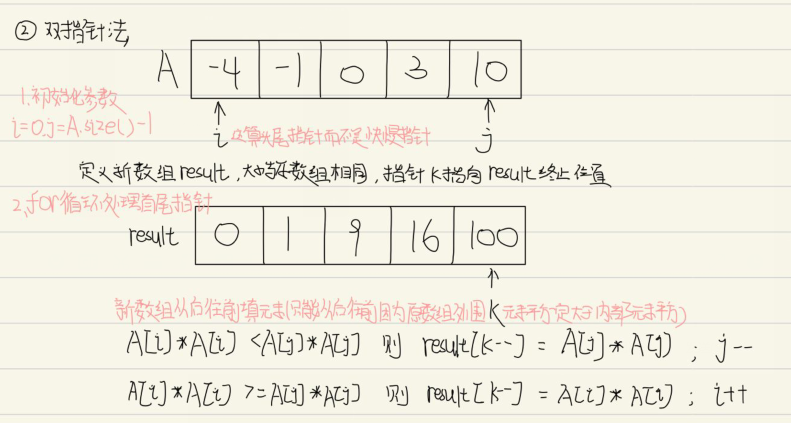 ② 双指针法
A -4 -1 0 3 10
1.初始化参数
i=0.j=A.size()-1
i 这算头尾指针而不是快慢指针 j
定义新数组result,大小与A数组相同,指针k指向result终止位置
2.for循环处理首尾指针
result 0 1 9 16 100
k
新数组从后往前填元素(只能从后往前因为原数组外围元素平方一定大于内部元素平方)
A[i]*A[i] <A[j]*A[j] 则 result[k--] = A[j]*A[j] ; j--
A[i]*A[i] >=A[j]*A[j] 则 result[k--] = A[i]*A[i] ; i++